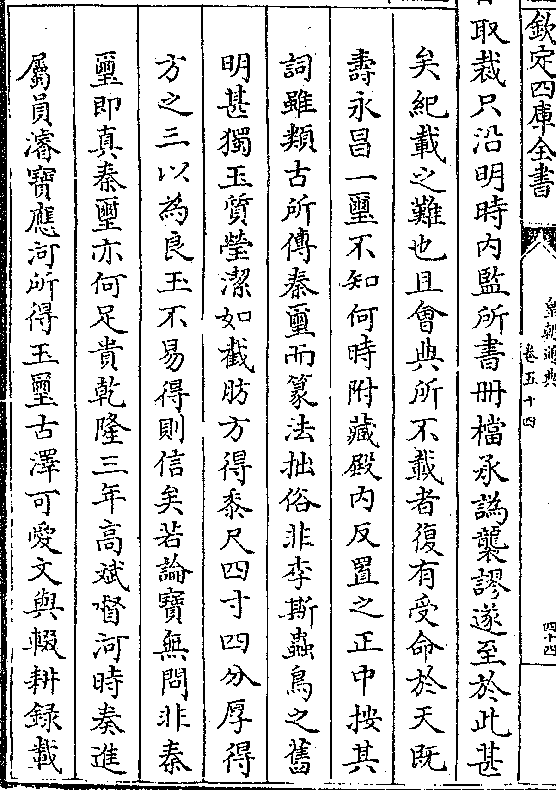 欽定四庫全書
皇朝通典
卷五十四
四十四
取裁只沿明時内監所書冊檔承譌襲謬遂至於此甚
矣紀載之難也且會典所不載者復有受命於天既
壽永昌一璽不知何時附藏殿内反置之正中按其
詞雖類古所傳秦璽而篆法拙俗非李斯蟲鳥之舊
明甚獨玉質瑩潔如截肪方得黍尺四寸四分厚得
方之三以為良玉不易得則信矣若論寶無問非秦
璽即真秦璽亦何足貴乾隆三年高斌督河時奏進
屬員濬寶應河所得玉璽古澤可愛文與輟耕錄載